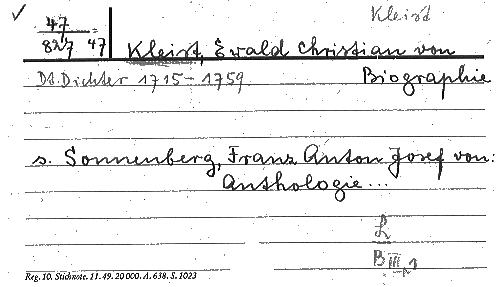 ✓
Kleist
47
827 47
Kleist, Ewald Christian von
Dt. Dichter 1715-1759.
Biographie
s. Sonnenberg, Franz Anton Josef von:
Anthologie...
L
B III, 1
Reg. 10. Stichnote. 11. 49. 20 000. A. 638. S. 1023